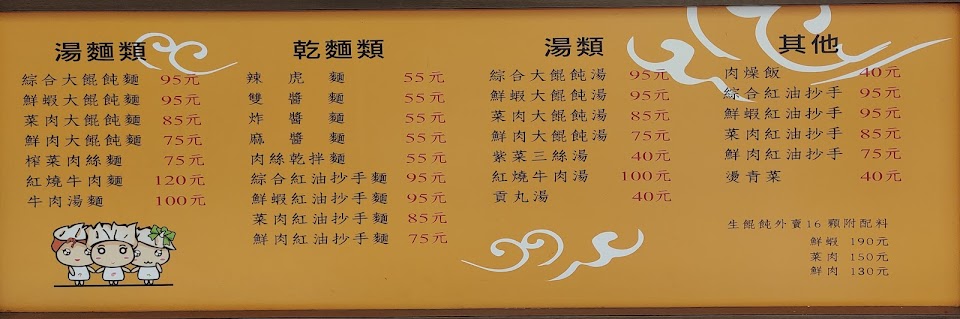 湯麵類
綜合大餛飩麵 95元
鮮蝦大餛飩麵 95元
菜肉大餛飩麵 85元
鮮肉大餛飩麵 75元
榨菜肉絲麵 75元
紅燒牛肉麵 120元
牛肉湯麵 100元
乾麵類
辣虎麵 55元
雙醬麵 55元
炸醬麵 55元
麻醬麵 55元
肉絲乾拌麵 55元
綜合紅油抄手麵 95元
鮮蝦紅油抄手麵 95元
菜肉紅油抄手麵 85元
鮮肉紅油抄手麵 75元
湯類
綜合大餛飩湯 95元
鮮蝦大餛飩湯 95元
菜肉大餛飩湯 85元
鮮肉大餛飩湯 75元
紫菜三絲湯 40元
紅燒牛肉湯 100元
貢丸湯 40元
其他
肉燥飯 40元
綜合紅油抄手 95元
鮮蝦紅油抄手 95元
菜肉紅油抄手 85元
鮮肉紅油抄手 75元
燙青菜 40元
生餛飩外賣16顆附配料
鮮蝦 190元
菜肉 150元
鮮肉 130元